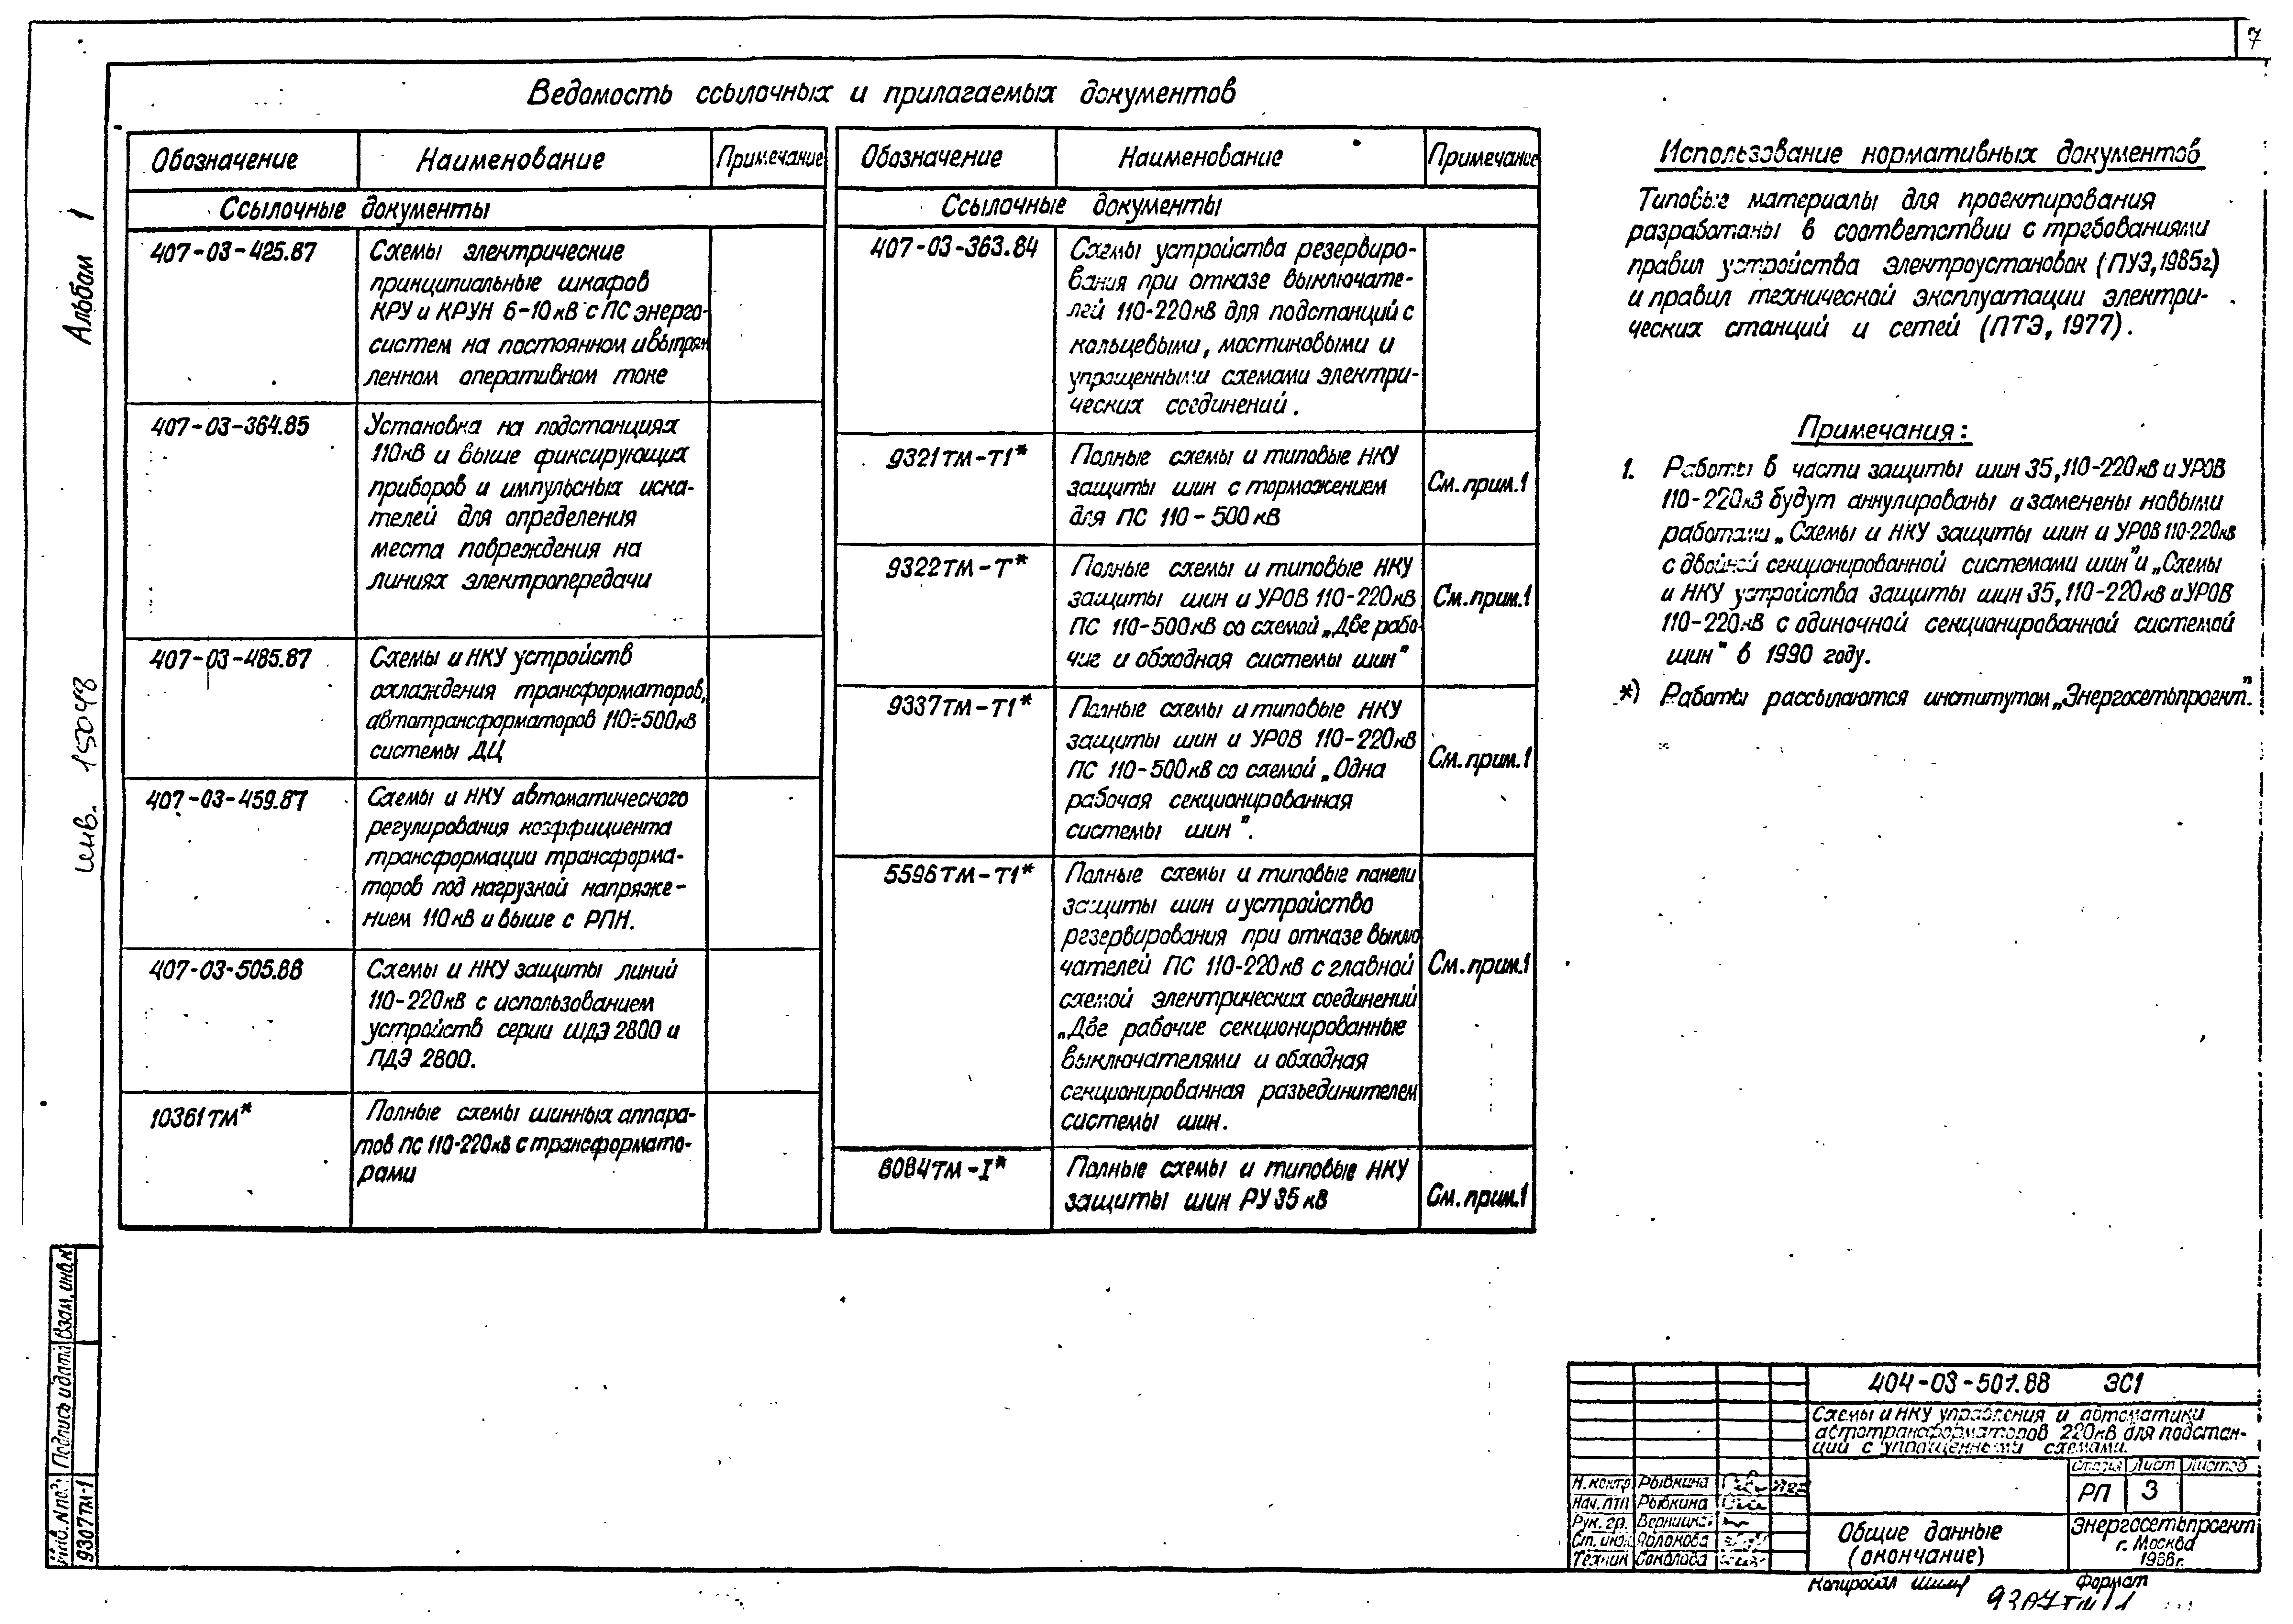 7
Ведомость ссылочных и прилагаемых документов
Обозначение Наименование Примечание
Ссылочные документы
407-03-425.87 Схемы электрические
принципиальные шкафов
КРУ и КРУН 6-10кВ с ПС энерго-
систем на постоянном и выпрям
ленном оперативном токе
407-03-364.85 Установка на подстанциях
110кВ и выше фиксирующих
приборов и импульсных иска-
телей для определения
места повреждения на
линиях электропередачи
407-03-485.87 Схемы и НКУ устройств
охлаждения трансформаторов,
автотрансформаторов 110÷500кВ
системы ДЦ
407-03-459.87 Схемы и НКУ автоматического
регулирования коэффициента
трансформации трансформа-
торов под нагрузкой напряже-
нием 110кВ и выше с РПН.
407-03-505.88 Схемы и НКУ защиты линий
110-220кВ с использованием
устройств серии ШДЭ 2800 и
ПДЭ 2800.
10361ТМ* Полные схемы шинных аппара-
тов ПС 110-220кВ с трансформато-
рами
Обозначение Наименование Примечание
Ссылочные документы
407-03-363.84 Схемы устройства резервиро-
вания при отказе выключате-
лей 110-220кВ для подстанций с
кольцевыми, мостиковыми и
упрощенными схемами электри-
ческих соединений.
9321ТМ-Т1* Полные схемы и типовые НКУ
защиты шин с торможением
для ПС 110-500кВ
См. прим.1
9322ТМ-Т* Полные схемы и типовые НКУ
защиты шин и УРОВ 110-220кВ
ПС 110-500кВ со схемой „Две рабо-
чие и обходная системы шин"
См. прим.1
9337ТМ-Т1* Полные схемы и типовые НКУ
защиты шин и УРОВ 110-220кВ
ПС 110-500кВ со схемой „Одна
рабочая секционированная
системы шин".
См. прим.1
5596ТМ-Т1* Полные схемы и типовые панели
защиты шин и устройство
резервирования при отказе выклю
чателей ПС 110-220кВ с главной
схемой электрических соединений
„Две рабочие секционированные
выключателями и обходная
секционированная разъединителем
системы шин.
См. прим.1
8084ТМ-I* Полные схемы и типовые НКУ
защиты шин РУ 35кВ
См. прим.1
Использование нормативных документов
Типовые материалы для проектирования
разработаны в соответствии с требованиями
правил устройства электроустановок (ПУЭ, 1985г)
и правил технической эксплуатации электри-
ческих станций и сетей (ПТЭ, 1977).
Примечания:
1. Работы в части защиты шин 35, 110-220кВ и УРОВ
110-220кВ будут аннулированы и заменены новыми
работами „Схемы и НКУ защиты шин и УРОВ 110-220кВ
с двойной секционированной системами шин" и „Схемы
и НКУ устройства защиты шин 35, 110-220кВ и УРОВ
110-220кВ с одиночной секционированной системой
шин" в 1990 году.
*) Работы рассылаются институтом „Энергосетьпроект".
Альбом 1
инв. 15048
Взам. инв. №
Подпись и дата
Инв. № подл.
9307ТМ-1
404-03-501.88 ЭС1
Схемы и НКУ управления и автоматики
автотрансформаторов 220кВ для подстан-
ций с упрощенными схемами.
Стадия Лист Листов
РП 3
Н. контр Рыбкина
Нач. ПТП Рыбкина
Рук. гр.
Ст. инж. Яблокова
Техник Соколова
Общие данные
(окончание)
Энергосетьпроект
г. Москва
1988г.
Копировал Формат
9307ТМ-1